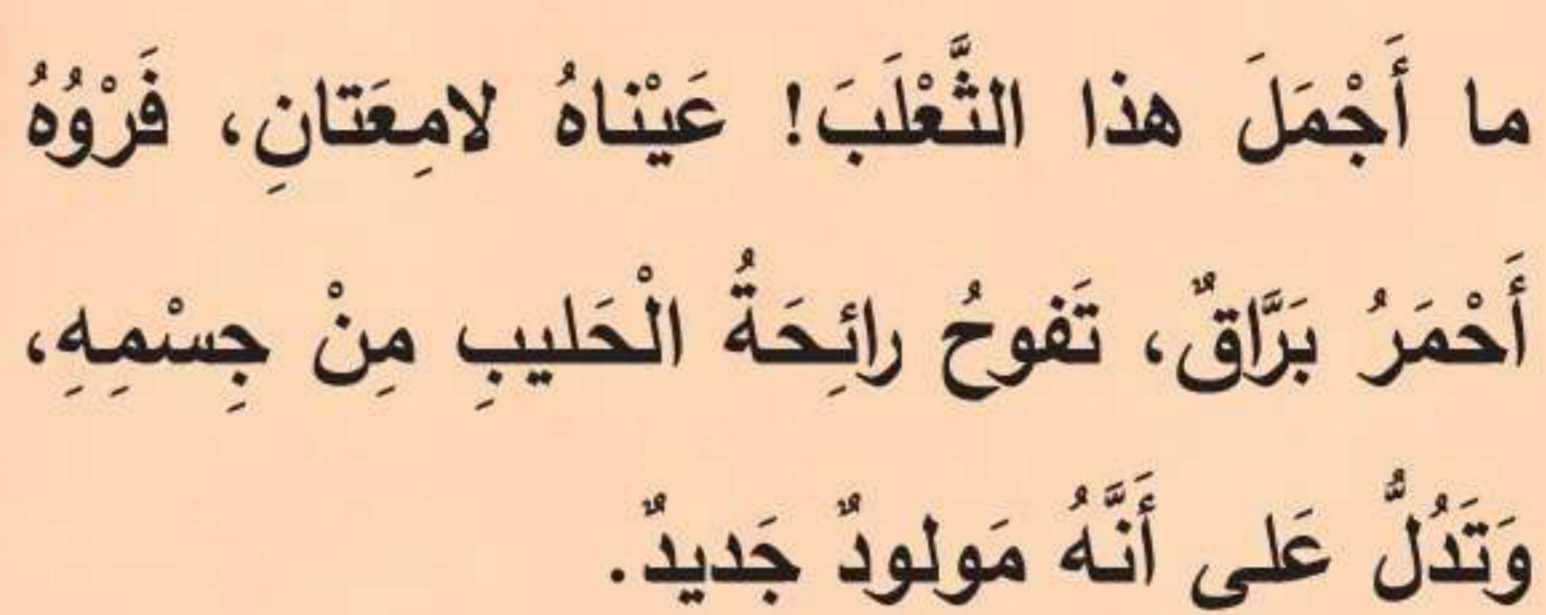 ما أَجْمَلَ هذا الثَّعْلَبَ! عَيْناهُ لامِعَتانِ، فَرْوُهُ
أَحْمَرُ بَرَّاقٌ، تَفوحُ رائِحَةُ الْحَليبِ مِنْ جِسْمِهِ،
وَتَدُلُّ عَلى أَنَّهُ مَولودٌ جَديدٌ.